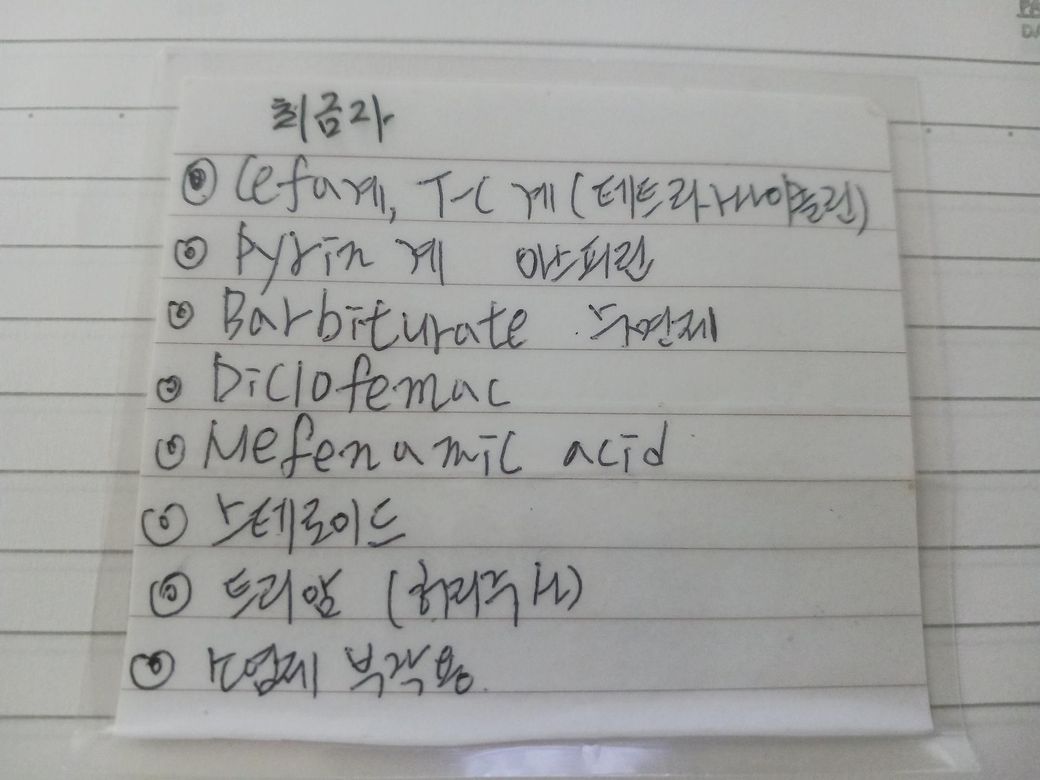 최금자
Cefa계, T-C 계 (테트라싸이클린)
Pyrin 계 아스피린
Barbiturate 수면제
Diclofemac
Mefenamic acid
스테로이드
트리암 (허리주사)
소염제 부작용.